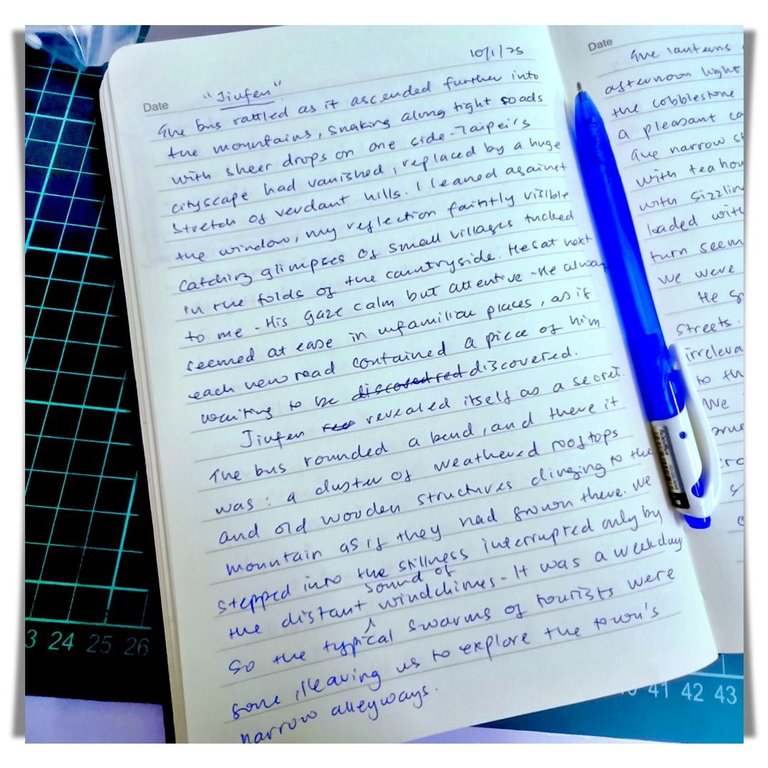 10/1/25
Date
"Jiufen"
The bus rattled as it ascended further into
the mountains, snaking along tight roads
with sheer drops on one side. Taipei's
cityscape had vanished, replaced by a huge
stretch of verdant hills. I leaned against
the window, my reflection faintly visible
catching glimpses of small villages tucked
in the folds of the countryside. He sat next
to me - His gaze calm but attentive - He always
seemed at ease in unfamiliar places, as if
each new road contained a piece of him
waiting to be discovered.
Jiufen revealed itself as a secret
The bus rounded a bend, and there it
was: a cluster of weathered rooftops
and old wooden structures clinging to the
mountain as if they had grown there. We
stepped into the stillness interrupted only by
the distant sound of windchimes. It was a weekday
so the typical swarms of tourists were
gone, leaving us to explore the town's
narrow alleyways.
Date
The lanterns
afternoon light
the cobblestone
a pleasant
The narrow
with tea
with sizzling
loaded with
turn
we were
He
streets.
to
We
23 24 25 26
40 41 42 43